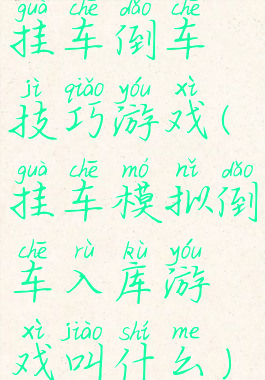 guà chē dǎo chē
挂车倒车
jì qiǎo yóu xì
技巧游戏(
guà chē mó nǐ dǎo
挂车模拟倒
chē rù kù yóu
车入库游
xì jiào shí me
戏叫什么)